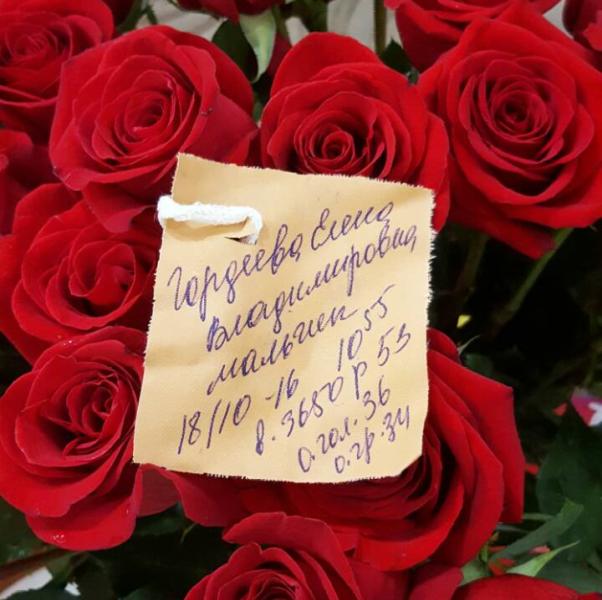 Гордеева Елена
Владимировна
мальчик
18/10-16 10 55
в. 3650 р 53
о.гол. 36
о.гр. 34